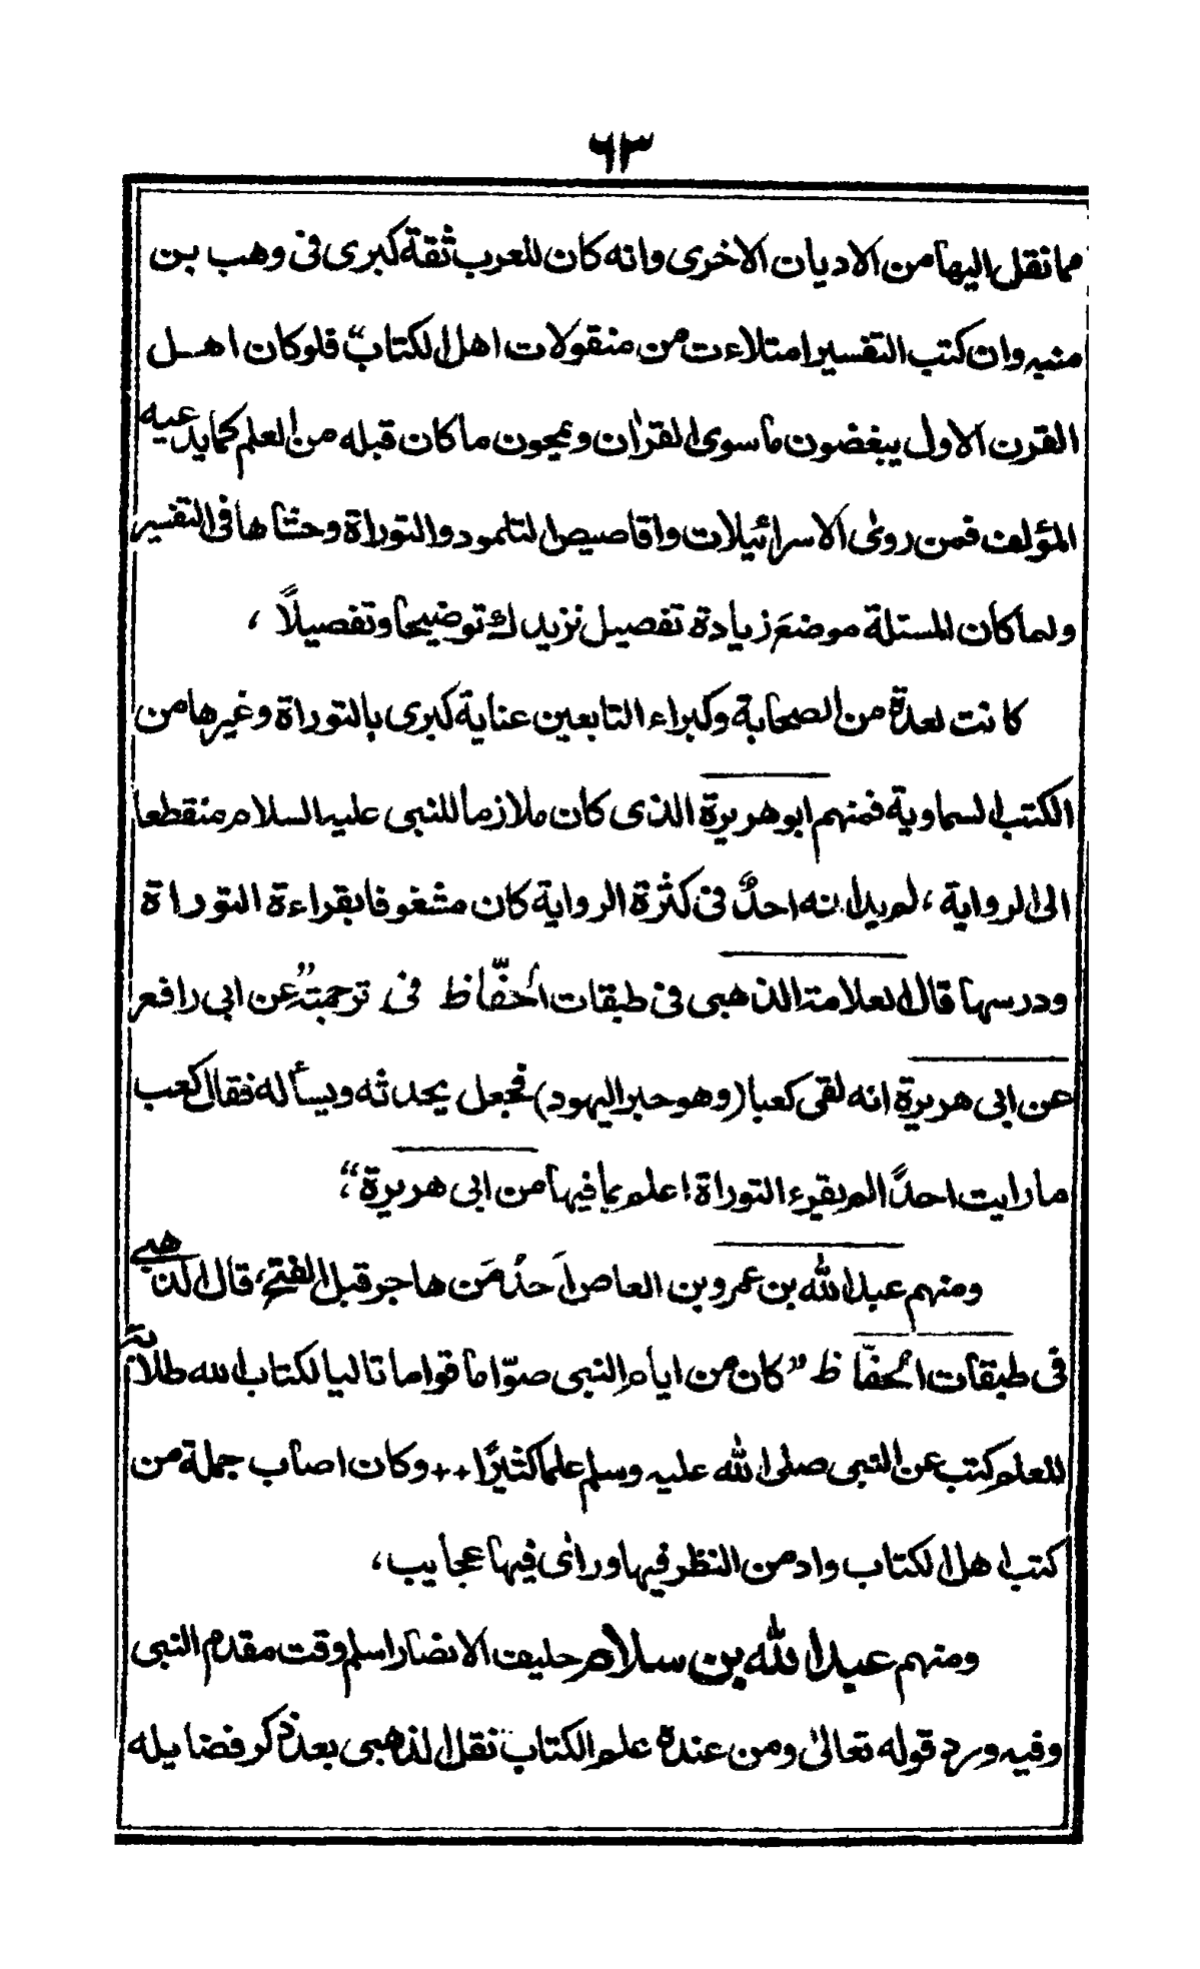 ٦٣
مما نقل اليها من الاديان الاخرى وانه كان للعرب ثقة كبرى فى وهب بن
منبه وان كتب التفسير امتلاءت من منقولات اهل الكتاب“ فلوكان اهل
القرن الاول يبغضون ما سوى القرأن ويمجون ما كان قبله من العلم كما يدعيه
المؤلف فمن روى الاسرائيلات واقاصيص التلمود والتوراة وحشاها فى التفسير
ولما كان المسئلة موضعَ زيادة تفصيل نزيدك توضيحا وتفصيلاً ،
كانت لعدة من الصحابة وكبراء التابعين عناية كبرى بالتوراة وغيرها من
الكتب السماوية فمنهم ابو هريرة الذى كان ملازما للنبى عليه السلام منقطعا
الى الرواية ، لم يدانه احدٌ فى كثرة الرواية كان مشغوفا بقراءة التوراة
ودرسها قال العلامة الذهبى فى طبقات الحفّاظ فى ترجمته ”عن ابى رافع
عن ابى هريرة انه لقى كعبا (وهو حبر اليهود) فجعل يحدثه ويسأله فقال كعب
ما رايت احدًا لم يقرء التوراة اعلم بما فيها من ابى هريرة“؛
ومنهم عبد الله بن عمرو بن العاص اَحدُ مَن هاجر قبل الفتح، قال الذهبى
فى طبقات الحفّاظ ”كان من ايام النبى صوّاما قواما تاليا لكتاب الله طلابة
للعلم كتب عن النبى صلى الله عليه وسلم علما كثيرًا ++ وكان اصاب جملة من
كتب اهل الكتاب وادمن النظر فيها ورأى فيها عجايب،
ومنهم عبد الله بن سلام حليف الانصار اسلم وقت مقدم النبى
وفيه ورد قوله تعالى ومن عنده علم الكتاب نقل الذهبى بعد ذكر فضايله